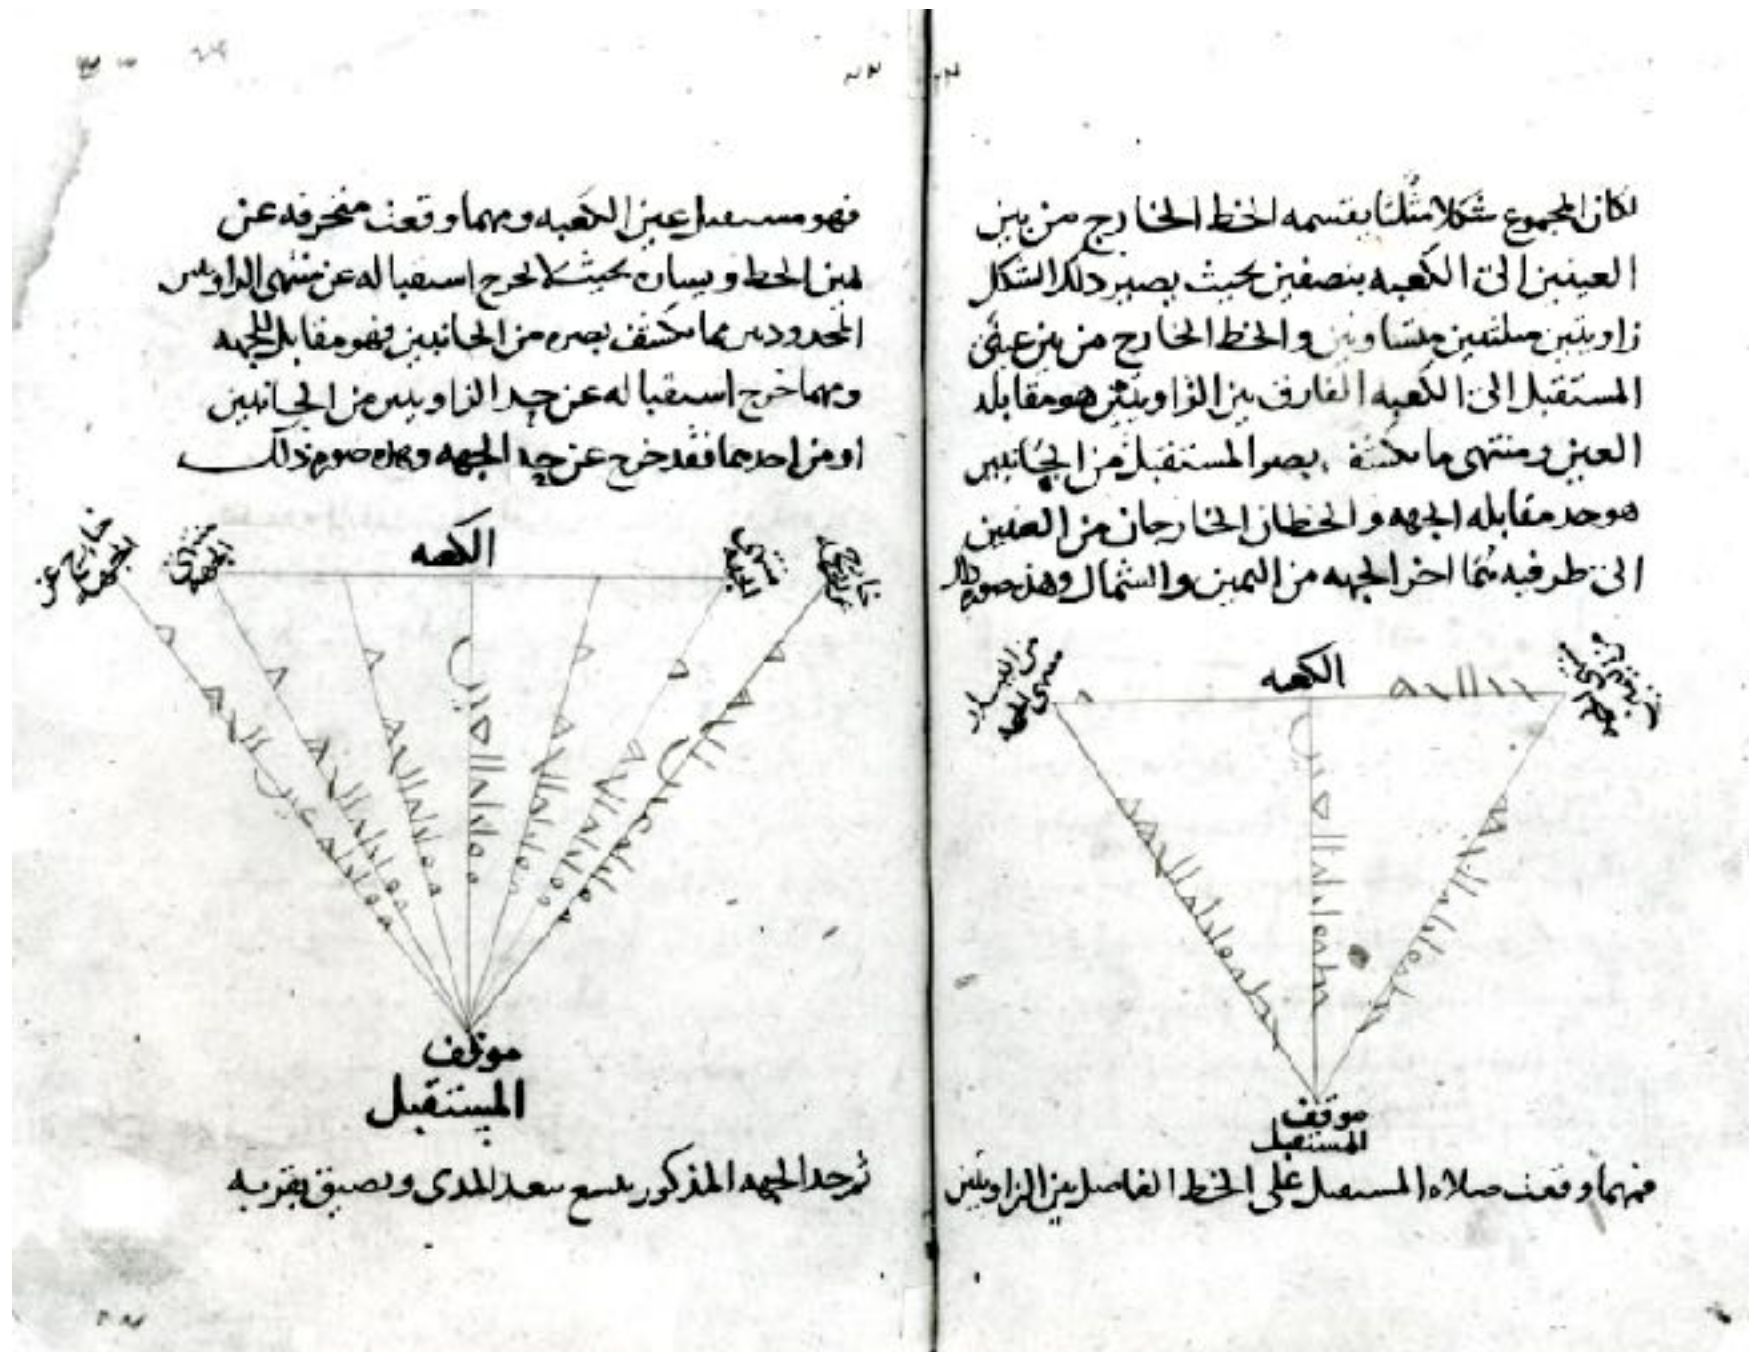 لكان المجموع شكلا مثلثا يقسمه الخط الخارج من بين
العينين الى الكعبه بنصفين بحيث يصير ذلك الشكل
زاويتين ملتقيين متساويتين والخط الخارج من بين عيني
المستقبل الى الكعبه الفارق بين الزاويتين هو مقابله
العين ومنتهى ما يكشفه بصر المستقبل من الجانبين
هو حد مقابله الجهه والخطان الخارجان من العينين
الى طرفيه هما اخر الجهه من اليمين والشمال وهذه صوره
الكعبه
من اليسار
منتهى الجهه
خط مقابله الجهه
خط مقابله العين
خط مقابله الجهه
موقف
المستقبل
فمهما وقعت صلاه المستقبل على الخط الفاصل بين الزاويتين
فهو مستقبل عين الكعبه ومهما وقعت منحرفه عن
يمين الخط ويساره بحيث لا يخرج استقباله عن منتهى الزاويتين
المحدودتين مما يكشف بصره من الجانبين فهو مقابل للجهه
ومهما خرج استقباله عن حد الزاويتين من الجانبين
او من احدهما فقد خرج عن حد الجهه وهذه صوره ذلك
الكعبه
خارج عن
الجهه
منتهى
الجهه
منتهى
الجهه
خارج
عن الجهه
مقابله الجهه
مقابله الجهه
مقابله العين
مقابله الجهه
مقابله الجهه
موقف
المستقبل
ثم حد الجهه المذكور يتسع ببعد المدى ويضيق بقربه